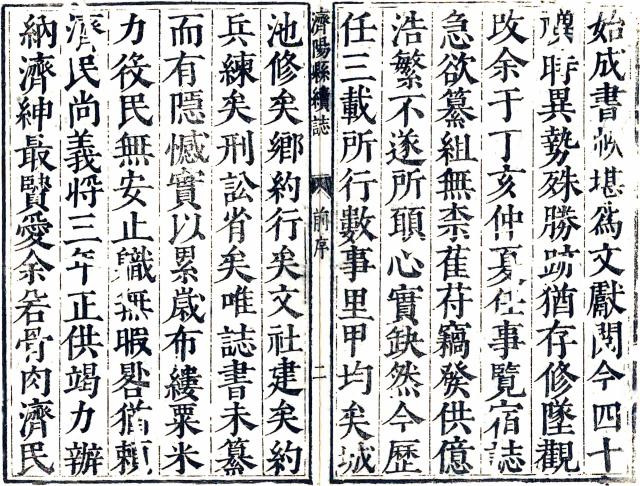 始成書堪爲文獻閱今四十
禩時異勢殊勝跡猶存修墜觀
攺余于丁亥仲夏任事覽宿誌
急欲纂組無柰萑苻竊發供億
浩繁不遂所頭心實缺然今歷
任三載所行數事里甲均矣城
濟陽縣續誌 前序 二
池修矣鄉約行矣文社建矣約
兵練矣刑訟省矣唯誌書未纂
而有隱憾實以累歲布縷粟米
力役民無安止職無暇晷猶頼
濟民尚義將三年正供竭力辦
納濟紳最賢愛余若骨肉濟民